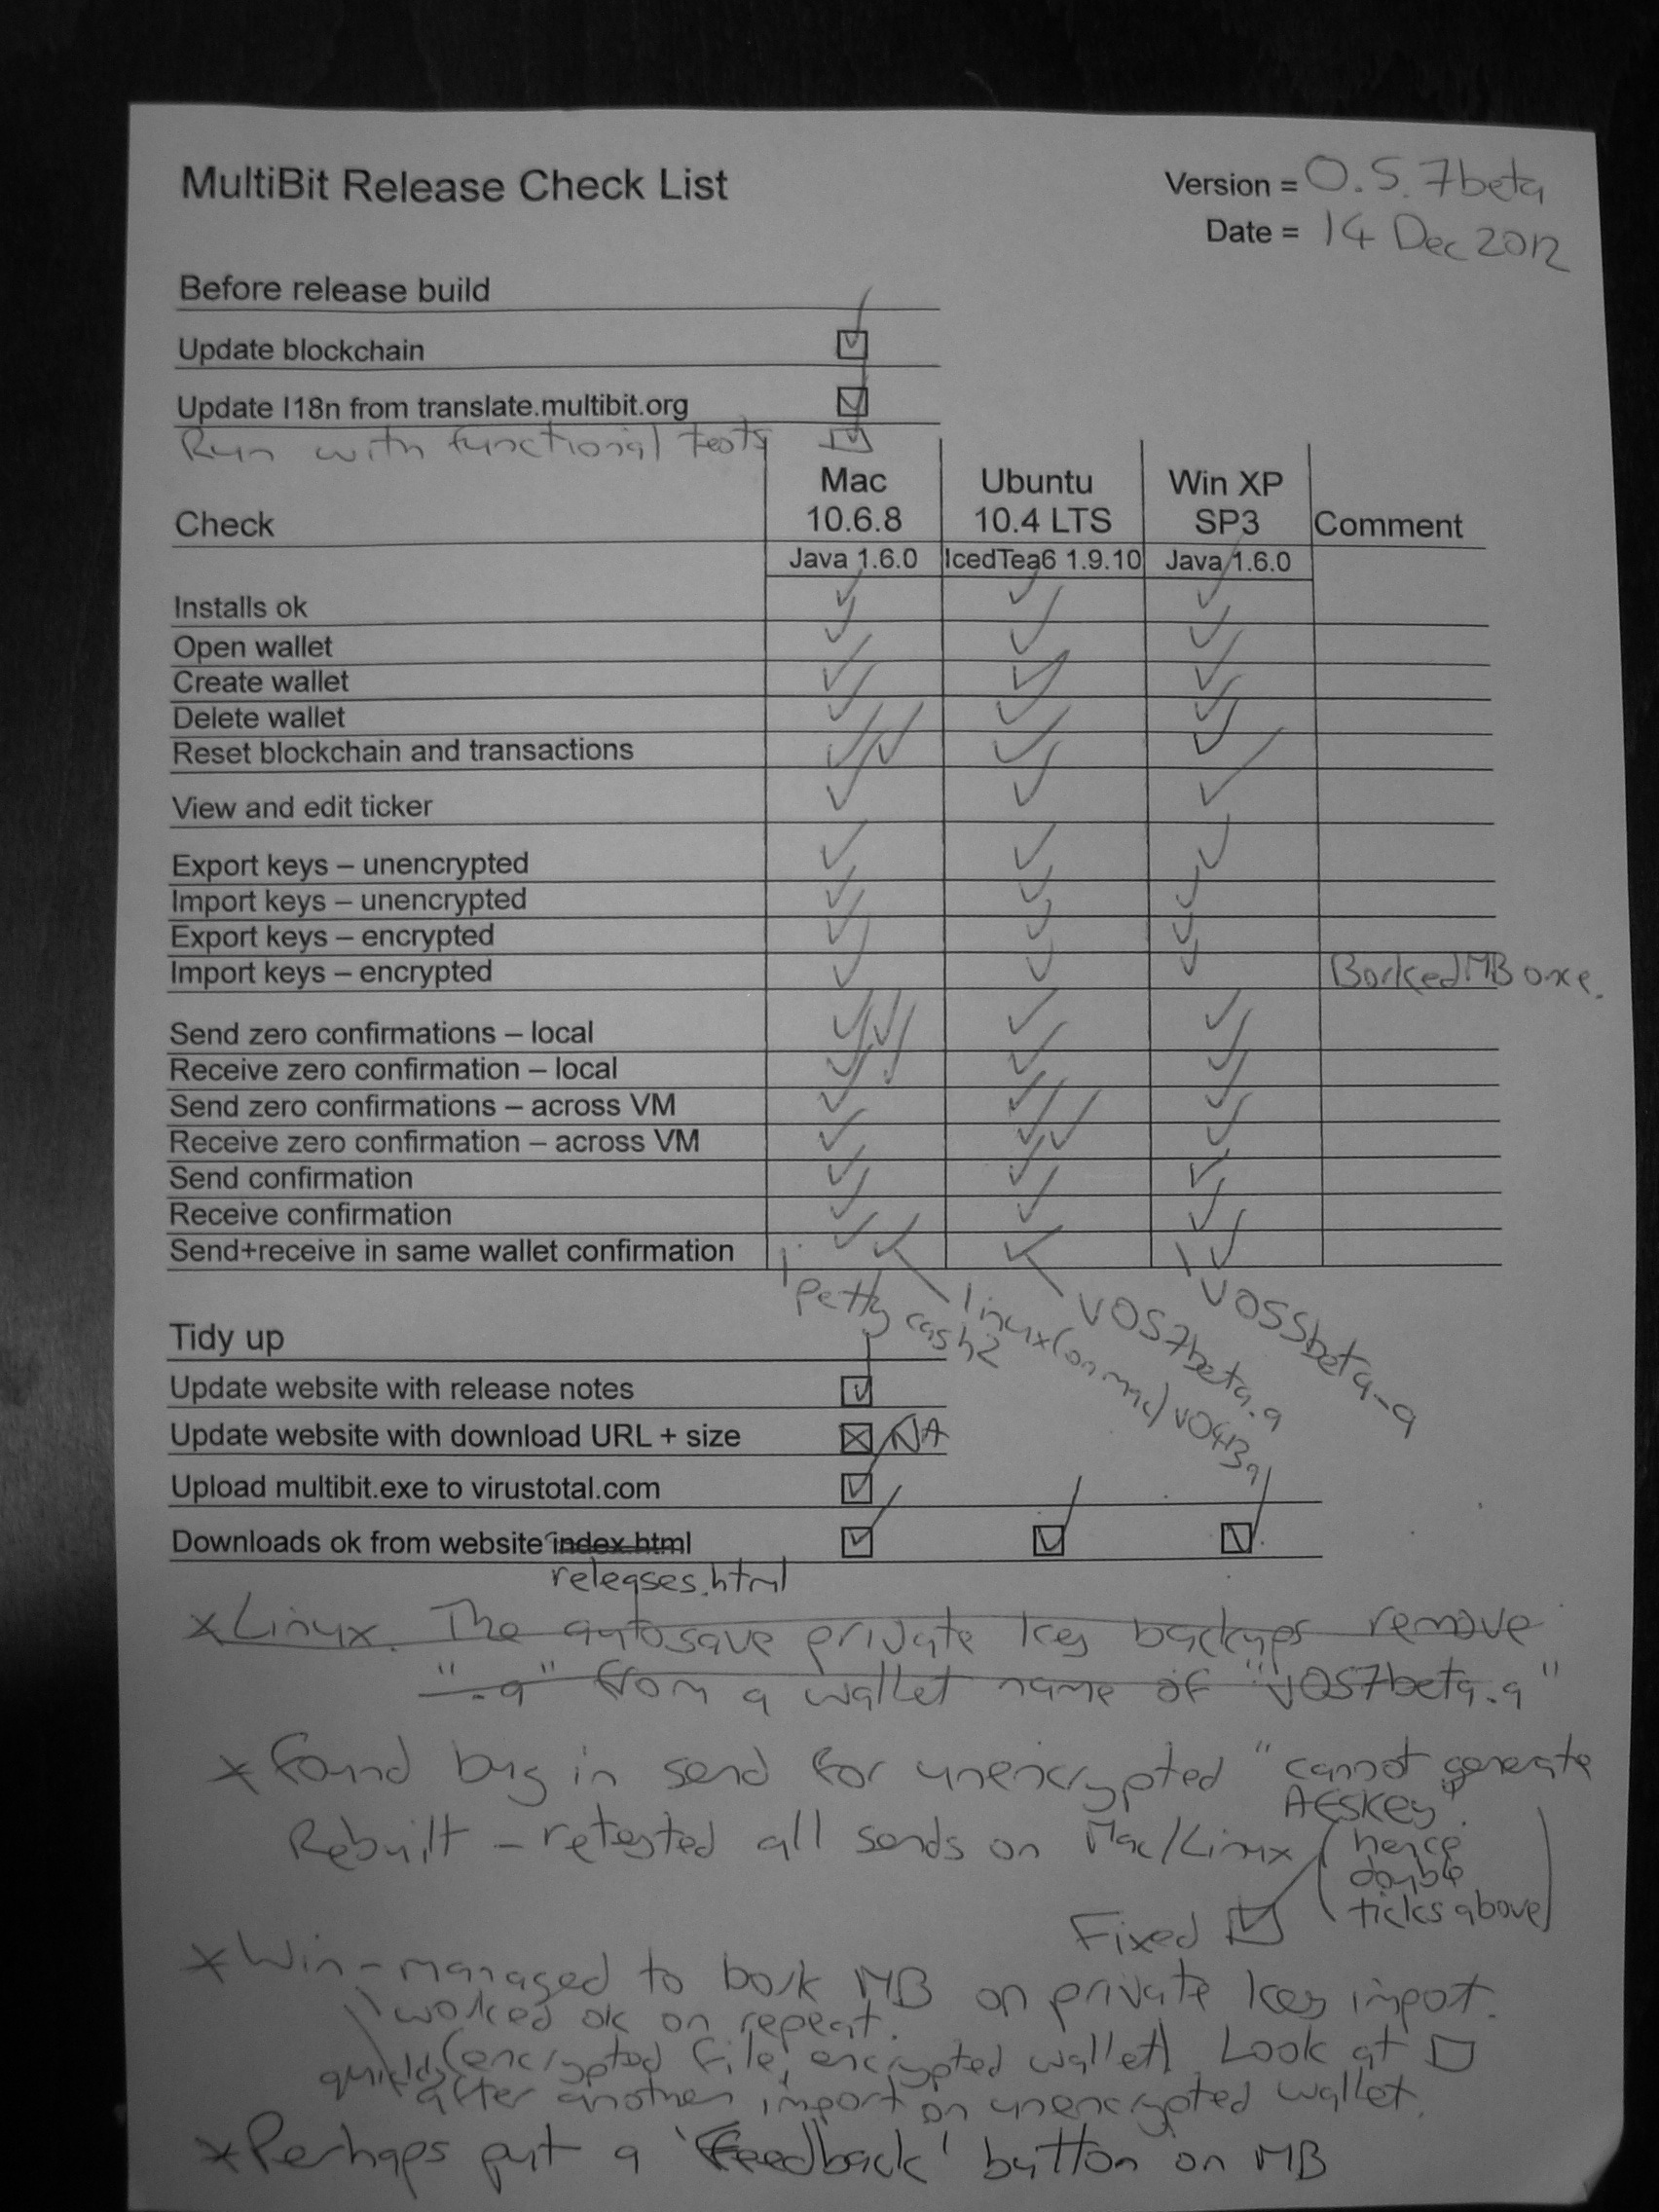 MultiBit Release Check List
Version = 0.5.7beta
Date = 14 Dec 2012
Before release build
Update blockchain
Update I18n from translate.multibit.org
Run with functional tests
Check Mac 10.6.8 Ubuntu 10.4 LTS Win XP SP3 Comment
Java 1.6.0 IcedTea6 1.9.10 Java 1.6.0
Installs ok
Open wallet
Create wallet
Delete wallet
Reset blockchain and transactions
View and edit ticker
Export keys – unencrypted
Import keys – unencrypted
Export keys – encrypted
Import keys – encrypted Borked MB once.
Send zero confirmations – local
Receive zero confirmation – local
Send zero confirmations – across VM
Receive zero confirmation – across VM
Send confirmation
Receive confirmation
Send+receive in same wallet confirmation
Petty cash2
linux(on mac) v043a
v057beta.a
v055beta-a
Tidy up
Update website with release notes
Update website with download URL + size NA
Upload multibit.exe to virustotal.com
Downloads ok from website index.html
releases.html
* Linux. The autosave private key backups remove
".a" from a wallet name of "v057beta.a"
* Found bug in send for unencrypted "cannot generate
AESKey".
Rebuilt – retested all sends on Mac/Linux (hence
double
ticks above)
Fixed
* Win – managed to bork MB on private key import.
worked ok on repeat.
(encrypted file, encrypted wallet) Look at
quickly after another import on unencrypted wallet.
* Perhaps put a 'Feedback' button on MB